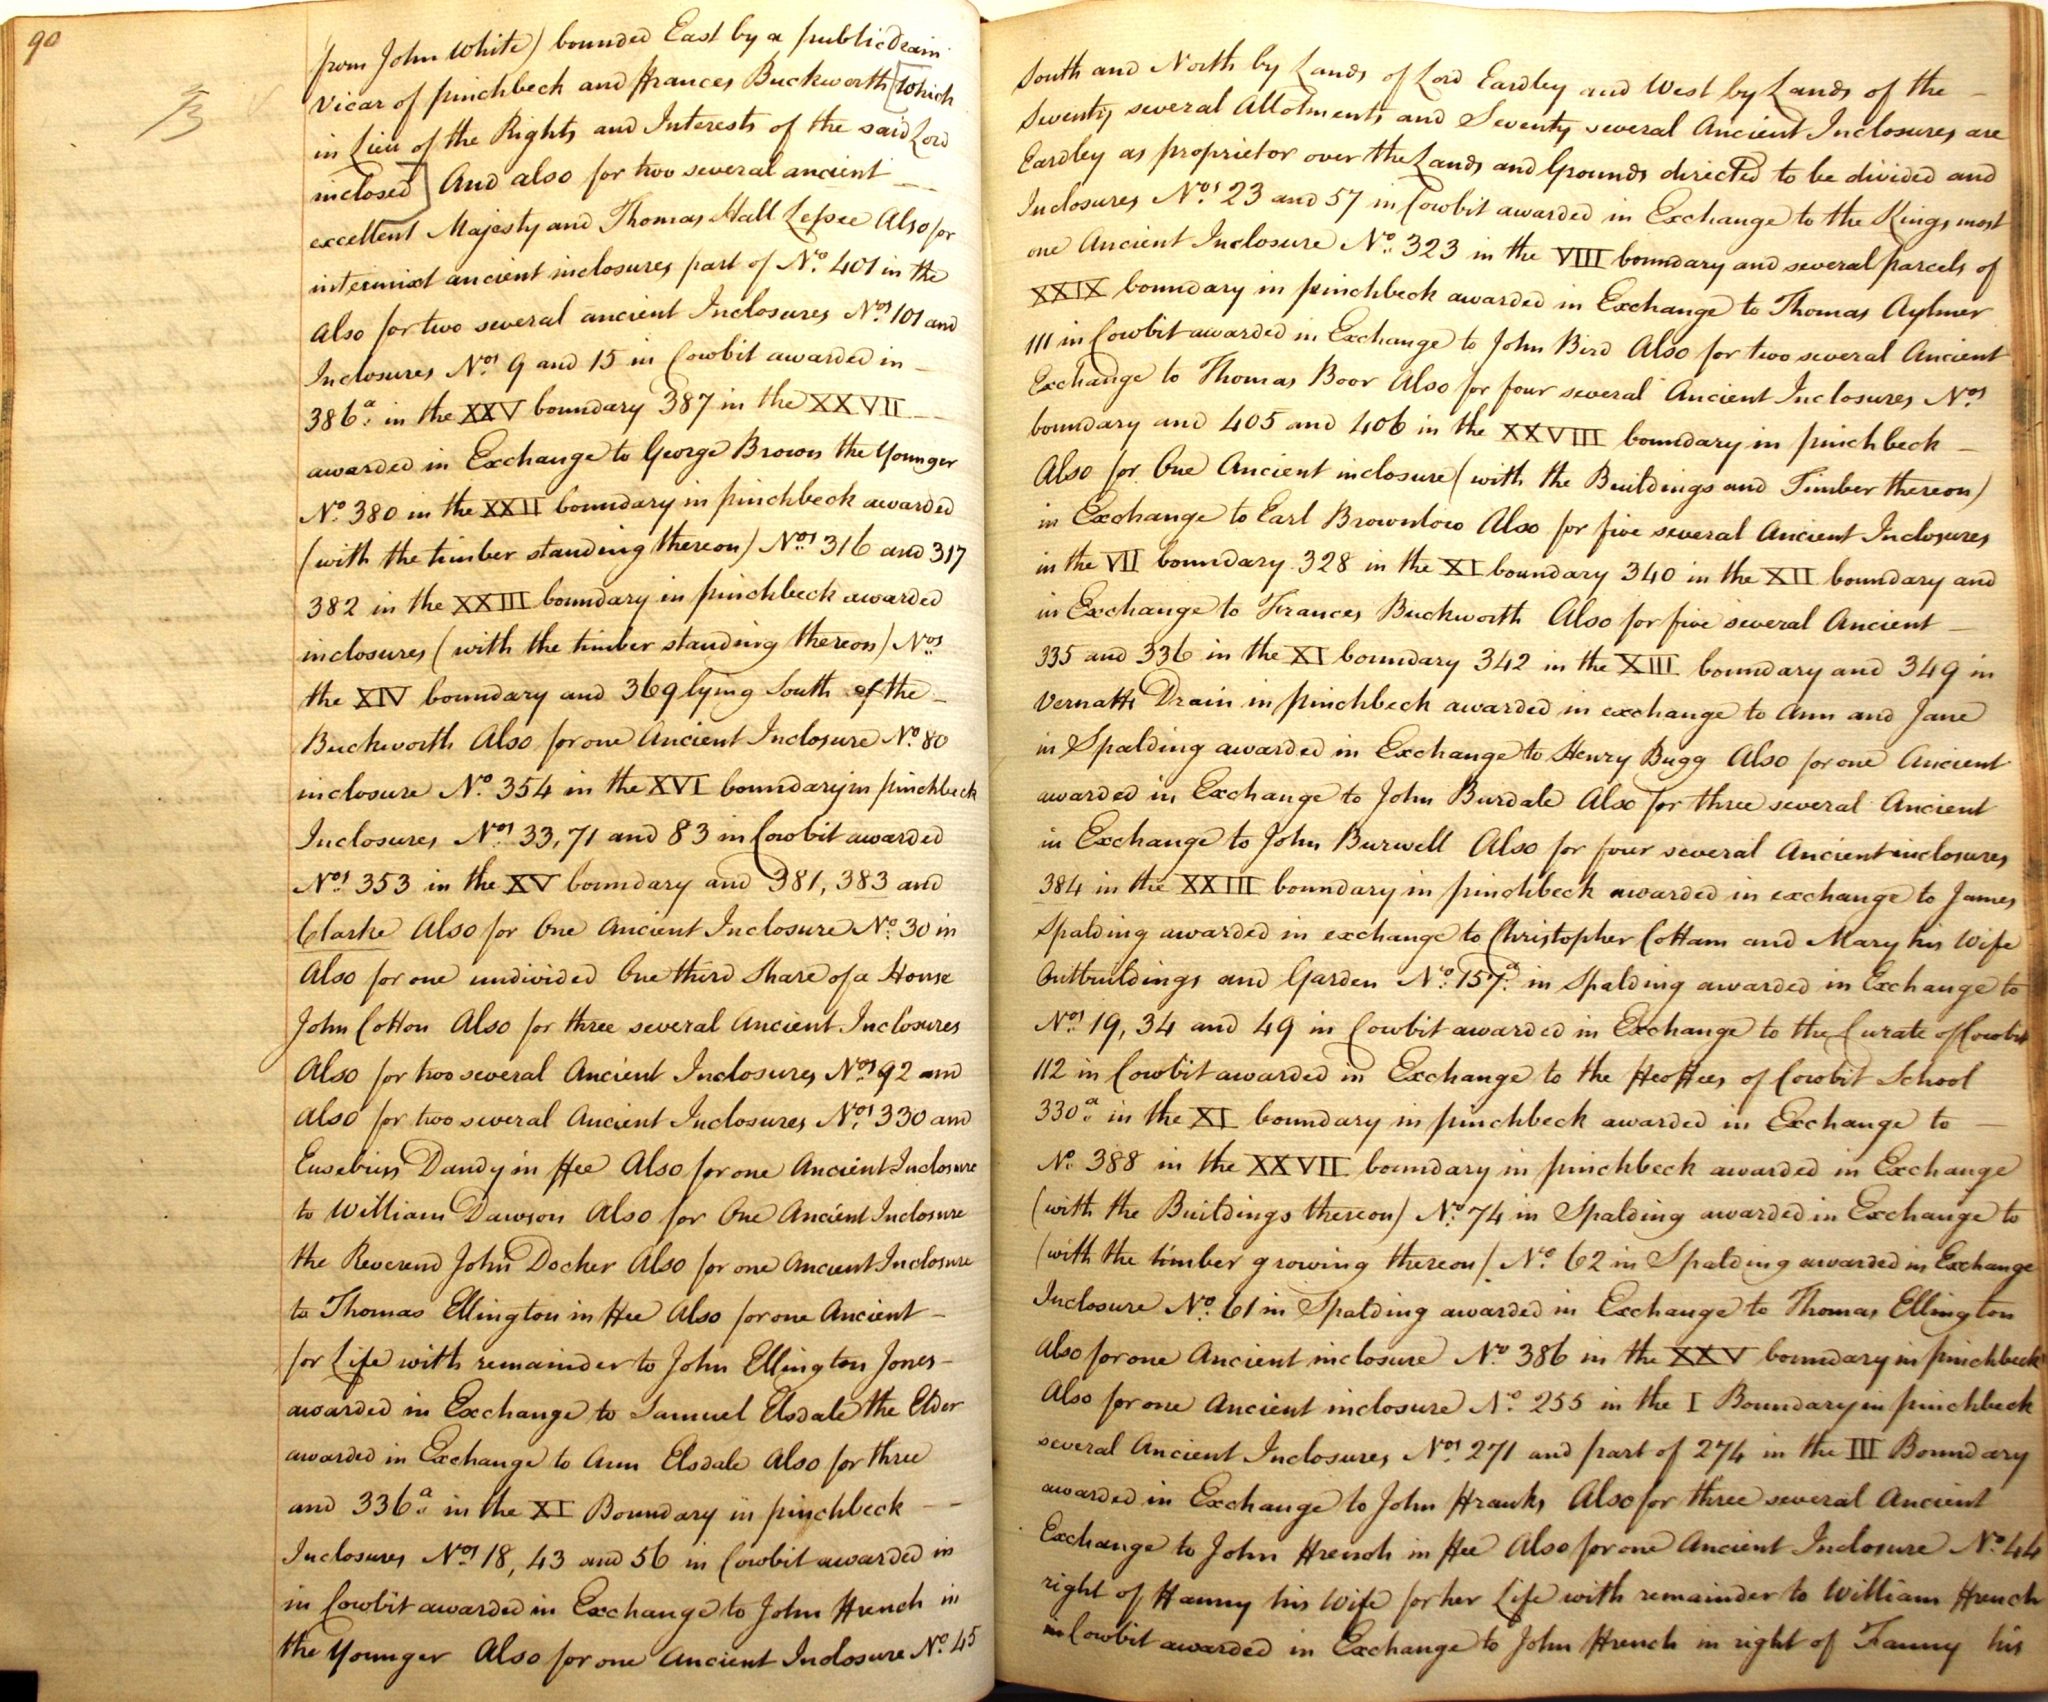 90
from John White) bounded East by a public Drain South and North by Lands of Lord Eardley and West by Lands of the
Vicar of pinchbeck and Frances Buckworth [which Seventy several Allotments and Seventy several Ancient Inclosures are
in Lieu of the Rights and Interests of the said Lord Eardley as proprietor over the Lands and Grounds directed to be divided and
inclosed] And also for two several ancient Inclosures Nos. 23 and 57 in Cowbit awarded in Exchange to the Kings most
excellent Majesty and Thomas Hall Lessee Also for one Ancient Inclosure No. 323 in the VIII boundary and several parcels of
intermixt ancient inclosures part of No. 401 in the XXIX boundary in pinchbeck awarded in Exchange to Thomas Aylmer
Also for two several ancient Inclosures Nos. 101 and 111 in Cowbit awarded in Exchange to John Bird Also for two several Ancient
Inclosures Nos. 9 and 15 in Cowbit awarded in Exchange to Thomas Boor Also for four several Ancient Inclosures Nos.
386a. in the XXV boundary 387 in the XXVII boundary and 405 and 406 in the XXVIII boundary in pinchbeck
awarded in Exchange to George Brown the Younger Also for One Ancient inclosure (with the Buildings and Timber thereon)
No. 380 in the XXII boundary in pinchbeck awarded in Exchange to Earl Brownlow Also for five several Ancient Inclosures
(with the timber standing thereon) Nos. 316 and 317 in the VII boundary 328 in the XI boundary 340 in the XII boundary and
382 in the XXIII boundary in pinchbeck awarded in Exchange to Frances Buckworth Also for five several Ancient
inclosures (with the timber standing thereon) Nos. 335 and 336 in the XI boundary 342 in the XIII boundary and 349 in
the XIV boundary and 369 lying South of the Vernatts Drain in pinchbeck awarded in exchange to Ann and Jane
Buckworth Also for one Ancient Inclosure No. 80 in Spalding awarded in Exchange to Henry Bugg Also for one Ancient
inclosure No. 354 in the XVI boundary in pinchbeck awarded in Exchange to John Burdale Also for three several Ancient
Inclosures Nos. 33, 71 and 83 in Cowbit awarded in Exchange to John Burwell Also for four several Ancient inclosures
Nos. 353 in the XV boundary and 381, 383 and 384 in the XXIII boundary in pinchbeck awarded in exchange to James
Clarke Also for One Ancient Inclosure No. 30 in Spalding awarded in exchange to Christopher Cottam and Mary his Wife
Also for one undivided One third Share of a House Outbuildings and Garden No. 157a. in Spalding awarded in Exchange to
John Cotton Also for three several Ancient Inclosures Nos. 19, 34 and 49 in Cowbit awarded in Exchange to the Curate of Cowbit
Also for two several Ancient Inclosures Nos. 92 and 112 in Cowbit awarded in Exchange to the Feoffees of Cowbit School
Also for two several Ancient Inclosures Nos. 330 and 330a. in the XI boundary in pinchbeck awarded in Exchange to
Eusebius Dandy in Fee Also for one Ancient Inclosure No. 388 in the XXVII boundary in pinchbeck awarded in Exchange
to William Dawson Also for One Ancient Inclosure (with the Buildings thereon) No. 74 in Spalding awarded in Exchange to
the Reverend John Docker Also for one Ancient Inclosure (with the timber growing thereon) No. 62 in Spalding awarded in Exchange
to Thomas Ellington in Fee Also for one Ancient Inclosure No. 61 in Spalding awarded in Exchange to Thomas Ellington
for Life with remainder to John Ellington Jones Also for one Ancient inclosure No. 386 in the XXV boundary in pinchbeck
awarded in Exchange to Samuel Elsdale the Elder Also for one Ancient inclosure No. 255 in the I Boundary in pinchbeck
awarded in Exchange to Ann Elsdale Also for three several Ancient Inclosures Nos. 271 and part of 274 in the III Boundary
and 336a. in the XI Boundary in pinchbeck awarded in Exchange to John Franks Also for three several Ancient
Inclosures Nos. 18, 43 and 56 in Cowbit awarded in Exchange to John French in Fee Also for one Ancient Inclosure No. 44
in Cowbit awarded in Exchange to John French in right of Fanny his Wife for her Life with remainder to William French
the Younger Also for one Ancient Inclosure No. 45 in Cowbit awarded in Exchange to John French in right of Fanny his